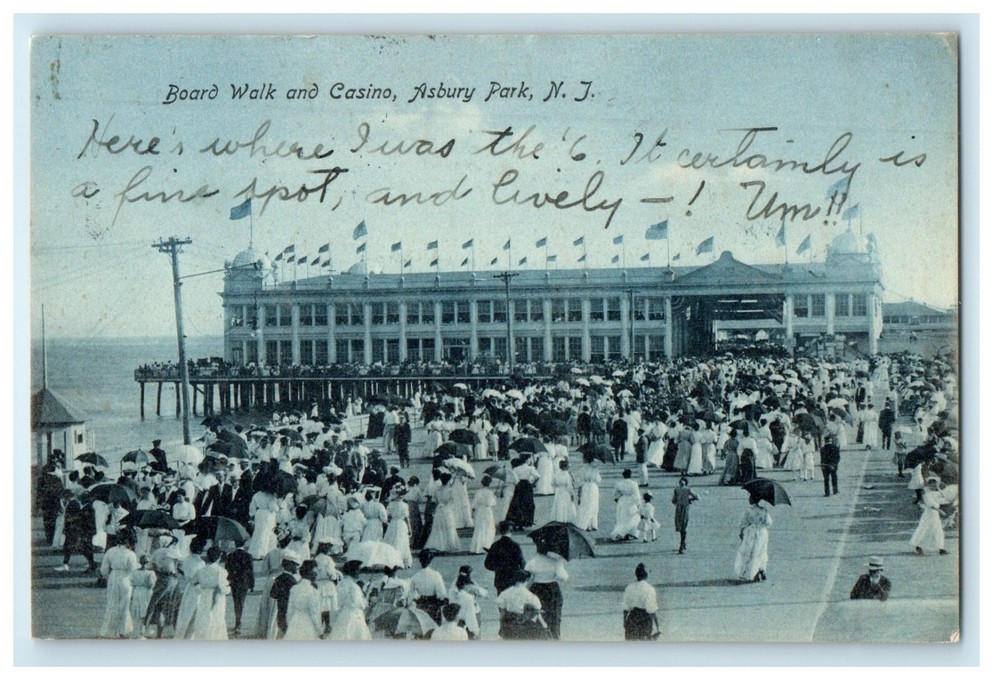 Board Walk and Casino, Asbury Park, N. J.
Here's where I was the '6. It certainly is
a fine spot, and lively -! Um!!